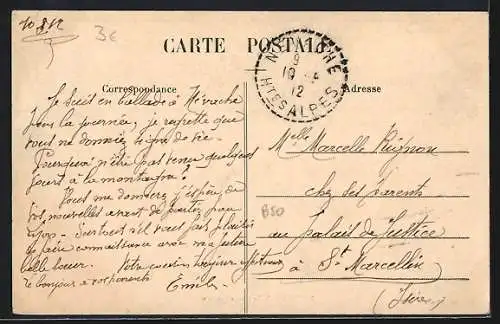 10-8-12
3e
CARTE POSTALE
Correspondance
Adresse
NÉVACHE
9
10 - 8
12
HTES ALPES
Je suis en ballade à Névache
pour la journée, je regrette que
vous ne donniez signe de vie.
Pourquoi n'être pas venue quelques
jours à la montagne ?
Vous me donnerez j'espère, de
vos nouvelles avant de partir pour
Dijon. Surtout s'il vous plait
de faire connaissance avec ma
belle soeur. Votre cousin toujours affectueux
le bonjour à vos parents Emile
Melle Marcelle
chez ses parents
au Palais de Justice
à St Marcellin
(Isère)
B50